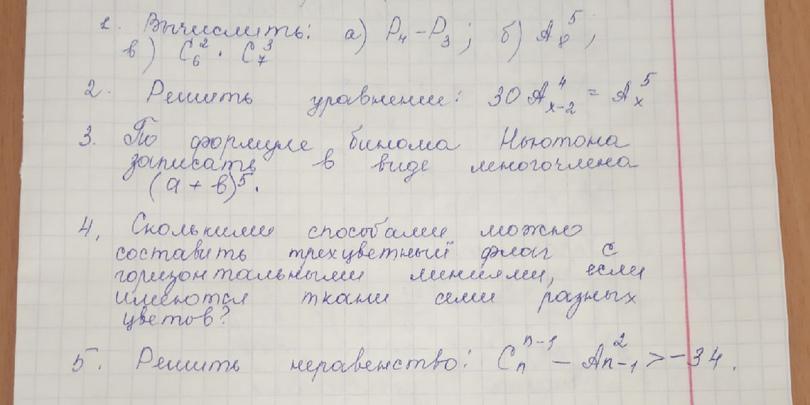 1. Вычислить: а) P₄ – P₃; б) A₈⁵,
в) C₆² · C₇³
2. Решить уравнение: 30 A⁴ₓ₋₂ = Aₓ⁵
3. По формуле бинома Ньютона
записать в виде многочлена
(а + в)⁵.
4. Сколькими способами можно
составить трехцветный флаг с
горизонтальными линиями, если
имеются ткани семи разных
цветов?
5. Решить неравенство: Cₙⁿ⁻¹ – A²ₙ₋₁ > –34.